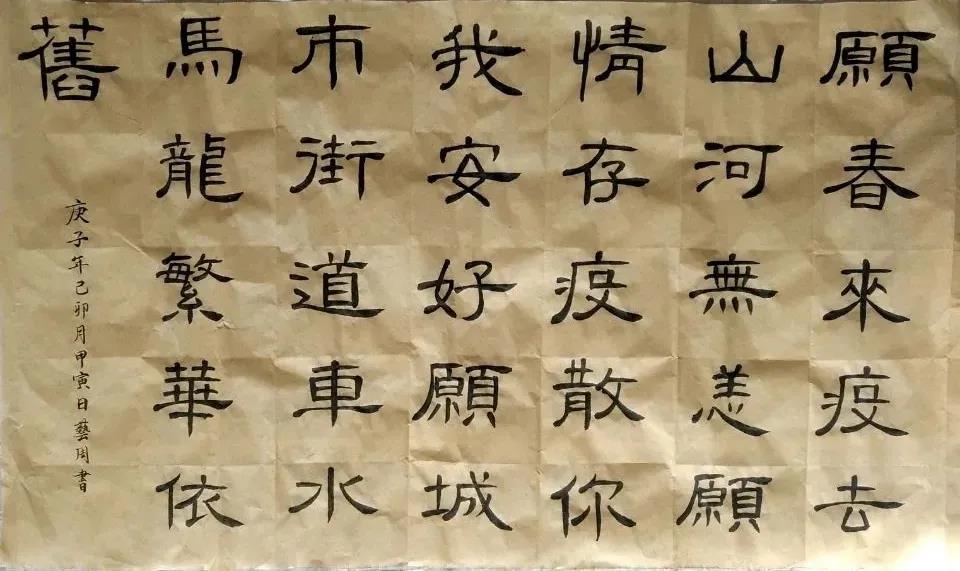 願春來疫去
山河無恙願
情存疫散你
我安好願城
市街道車水
馬龍繁華依
舊
庚子年己卯月甲寅日藝周書